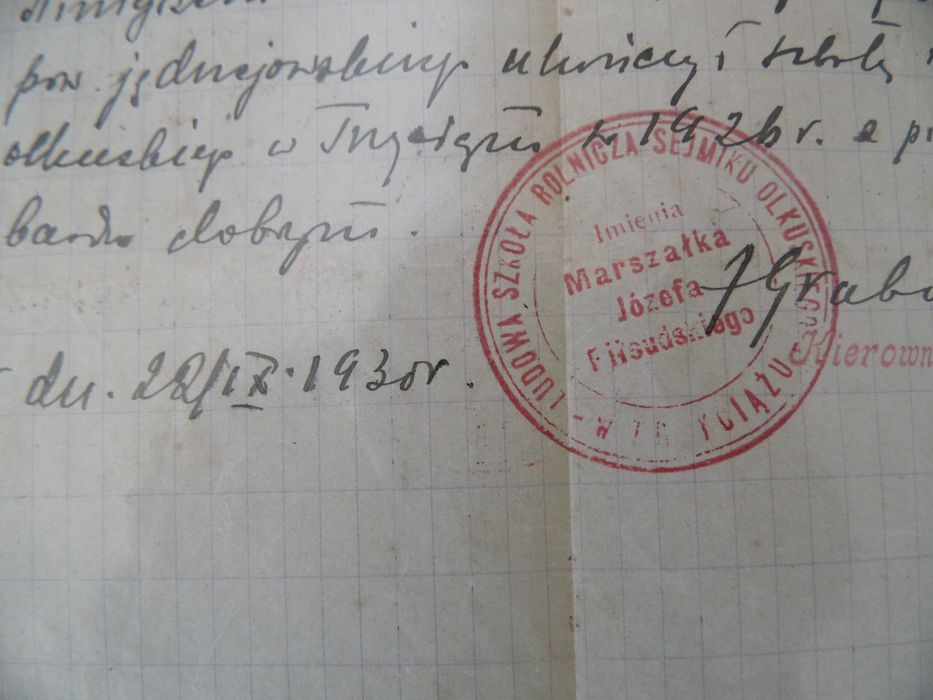 pow. jędrzejowskiego ukończył szkołę
olkuskiego w Trzyciążu w 1926 r. z
bardzo dobrym.
LUDOWA SZKOŁA ROLNICZA SEJMIKU OLKUSKIEGO
- W TRZYCIĄŻU -
Imienia
Marszałka
Józefa
Piłsudskiego
Kierown
dn. 22/IX. 1930r.